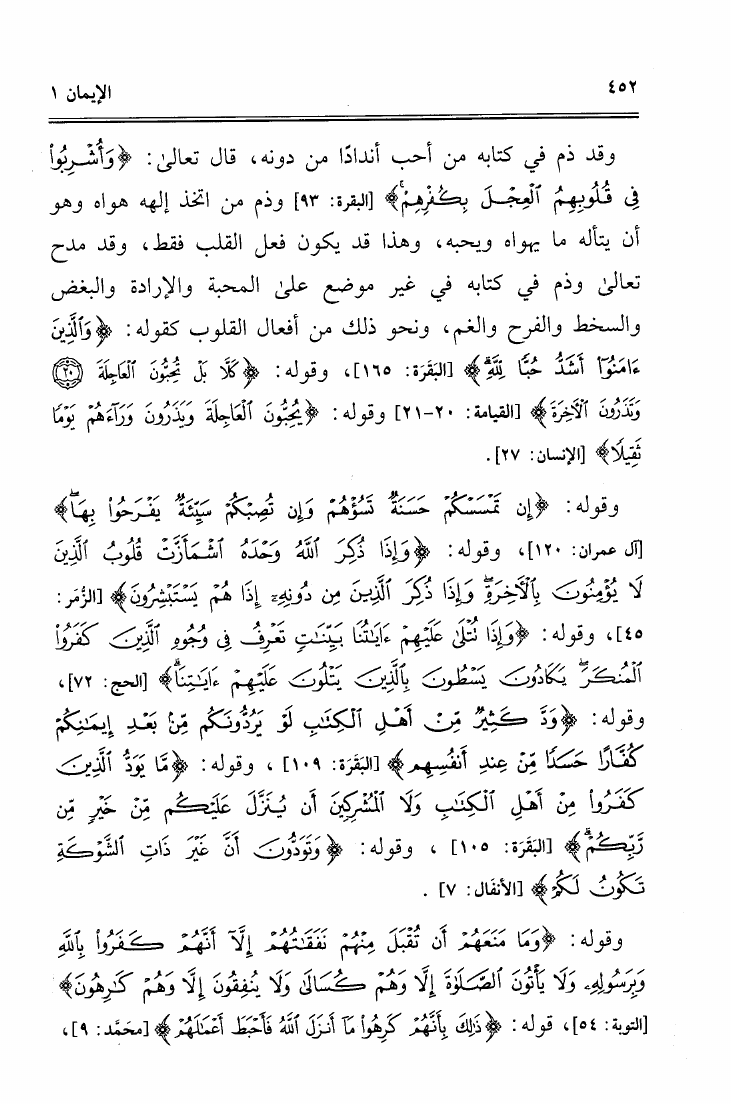 ٤٥٢ الإيمان ١
وقد ذم في كتابه من أحب أندادًا من دونه، قال تعالىٰ: ﴿وَأُشۡرِبُواْ
فِي قُلُوبِهِمُ ٱلۡعِجۡلَ بِكُفۡرِهِمۡۚ﴾ [البقرة: ٩٣] وذم من اتخذ إلهه هواه وهو
أن يتأله ما يهواه ويحبه، وهذا قد يكون فعل القلب فقط، وقد مدح
تعالىٰ وذم في كتابه في غير موضع علىٰ المحبة والإرادة والبغض
والسخط والفرح والغم، ونحو ذلك من أفعال القلوب كقوله: ﴿وَٱلَّذِينَ
ءَامَنُوٓاْ أَشَدُّ حُبّٗا لِّلَّهِۗ﴾ [البَقَرَة: ١٦٥]، وقوله: ﴿كَلَّا بَلۡ تُحِبُّونَ ٱلۡعَاجِلَةَ ٢٠
وَتَذَرُونَ ٱلۡأٓخِرَةَ﴾ [القيامة: ٢٠-٢١] وقوله: ﴿يُحِبُّونَ ٱلۡعَاجِلَةَ وَيَذَرُونَ وَرَآءَهُمۡ يَوۡمٗا
ثَقِيلٗا﴾ [الإنسان: ٢٧].
وقوله: ﴿إِن تَمۡسَسۡكُمۡ حَسَنَةٞ تَسُؤۡهُمۡ وَإِن تُصِبۡكُمۡ سَيِّئَةٞ يَفۡرَحُواْ بِهَاۖ﴾
[آل عمران: ١٢٠]، وقوله: ﴿وَإِذَا ذُكِرَ ٱللَّهُ وَحۡدَهُ ٱشۡمَأَزَّتۡ قُلُوبُ ٱلَّذِينَ
لَا يُؤۡمِنُونَ بِٱلۡأٓخِرَةِۖ وَإِذَا ذُكِرَ ٱلَّذِينَ مِن دُونِهِۦٓ إِذَا هُمۡ يَسۡتَبۡشِرُونَ﴾ [الزُّمَر:
٤٥]، وقوله: ﴿وَإِذَا تُتۡلَىٰ عَلَيۡهِمۡ ءَايَٰتُنَا بَيِّنَٰتٖ تَعۡرِفُ فِي وُجُوهِ ٱلَّذِينَ كَفَرُواْ
ٱلۡمُنكَرَۖ يَكَادُونَ يَسۡطُونَ بِٱلَّذِينَ يَتۡلُونَ عَلَيۡهِمۡ ءَايَٰتِنَاۗ﴾ [الحج: ٧٢]،
وقوله: ﴿وَدَّ كَثِيرٞ مِّنۡ أَهۡلِ ٱلۡكِتَٰبِ لَوۡ يَرُدُّونَكُم مِّنۢ بَعۡدِ إِيمَٰنِكُمۡ
كُفَّارًا حَسَدٗا مِّنۡ عِندِ أَنفُسِهِم﴾ [البَقَرَة: ١٠٩]، وقوله: ﴿مَّا يَوَدُّ ٱلَّذِينَ
كَفَرُواْ مِنۡ أَهۡلِ ٱلۡكِتَٰبِ وَلَا ٱلۡمُشۡرِكِينَ أَن يُنَزَّلَ عَلَيۡكُم مِّنۡ خَيۡرٖ مِّن
رَّبِّكُمۡۗ﴾ [البَقَرَة: ١٠٥]، وقوله: ﴿وَتَوَدُّونَ أَنَّ غَيۡرَ ذَاتِ ٱلشَّوۡكَةِ
تَكُونُ لَكُمۡ﴾ [الأنفَال: ٧].
وقوله: ﴿وَمَا مَنَعَهُمۡ أَن تُقۡبَلَ مِنۡهُمۡ نَفَقَٰتُهُمۡ إِلَّآ أَنَّهُمۡ كَفَرُواْ بِٱللَّهِ
وَبِرَسُولِهِۦ وَلَا يَأۡتُونَ ٱلصَّلَوٰةَ إِلَّا وَهُمۡ كُسَالَىٰ وَلَا يُنفِقُونَ إِلَّا وَهُمۡ كَٰرِهُونَ﴾
[التوبة: ٥٤]، قوله: ﴿ذَٰلِكَ بِأَنَّهُمۡ كَرِهُواْ مَآ أَنزَلَ ٱللَّهُ فَأَحۡبَطَ أَعۡمَٰلَهُمۡ﴾ [محَمَّد: ٩]،